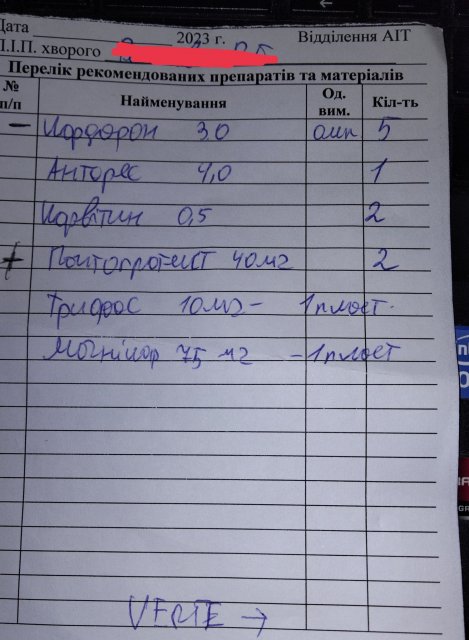 Дата 2023 г. Відділення АІТ
П.І.П. хворого
Перелік рекомендованих препаратів та матеріалів
№ п/п Найменування Од. вим. Кіл-ть
— Кордарон 3.0 амп 5
Антарес 4,0 1
Корвітин 0,5 2
+ Пантопротект 40мг 2
Трифас 10мг - 1 пласт.
Магнікор 75 мг - 1 пласт
VERTE →